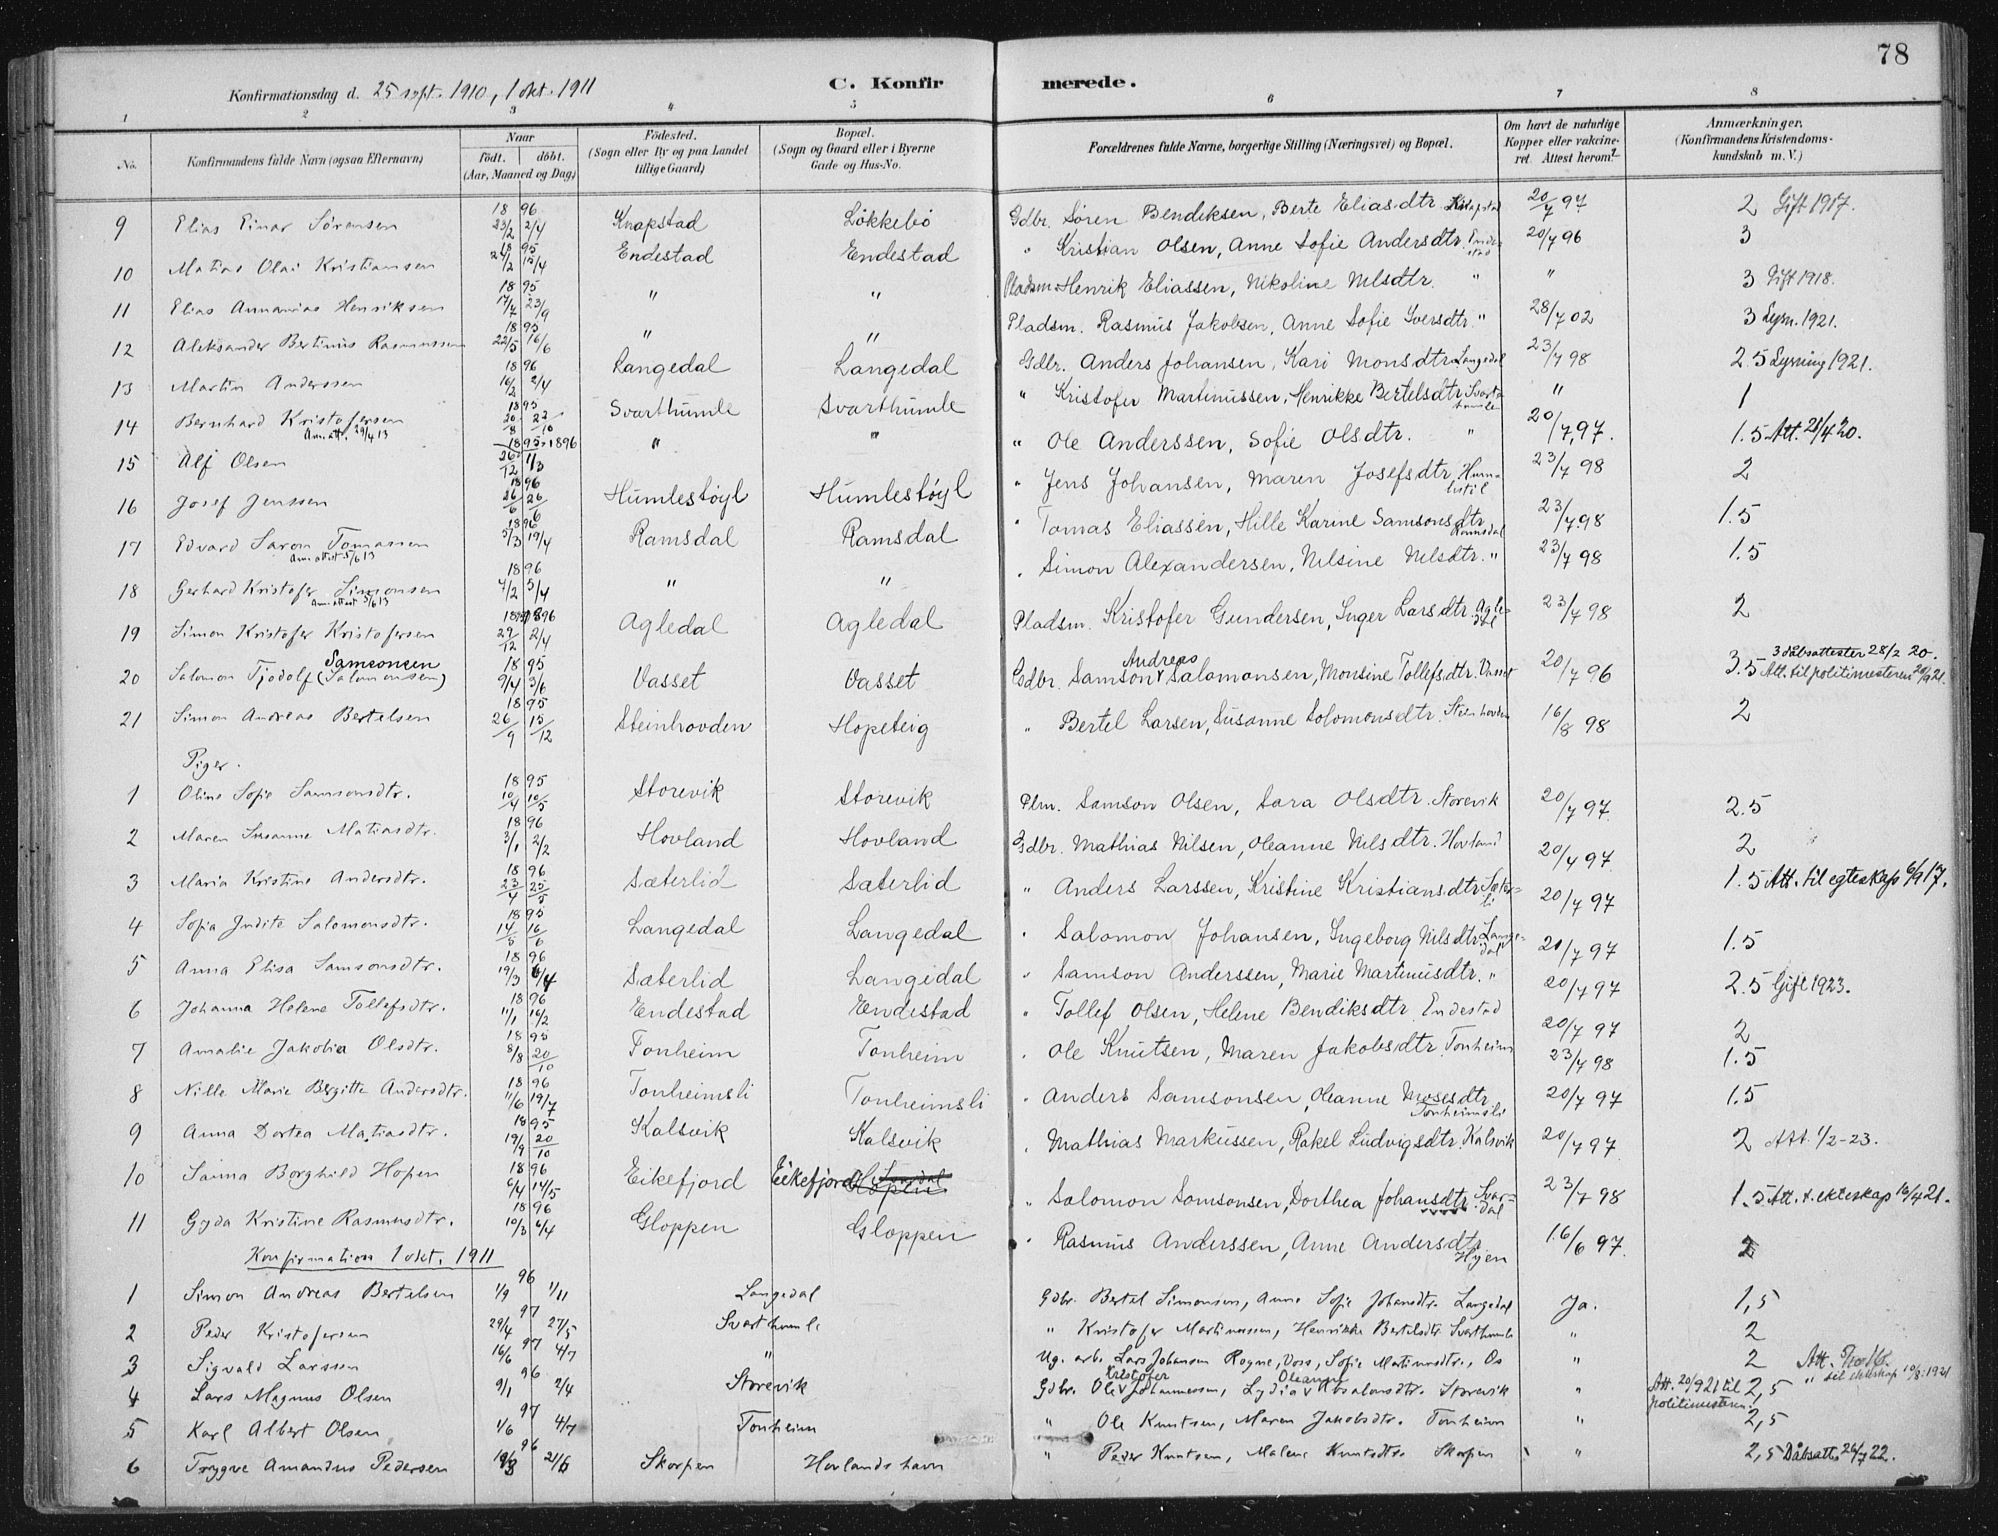 78
Konfirmationsdag d. 25 sept. 1910, 1 okt. 1911
C. Konfirmerede.
1 2 3 4 5 6 7 8
No. Konfirmandens fulde Navn (ogsaa Efternavn) Naar födt. döbt. (Aar, Maaned og Dag) Födested. (Sogn eller By og paa Landet tillige Gaard) Bopæl. (Sogn og Gaard eller i Byerne Gade og Hus-No. Forældrenes fulde Navne, borgerlige Stilling (Næringsvei) og Bopæl. Om havt de naturlige Kopper eller vakcineret Attest herom? Anmærkninger, (Konfirmandens Kristendomskundskab m. V.)
9 Elias Einar Sörensen 1896 23/2 2/4 Knapstad Løkkebø Gdbr. Søren Bendiksen, Berte Eliasdtr. Knapstad 20/7 97 2 Gift 1917.
10 Matias Olai Kristiansen 1895 24/2 15/4 Endestad Endestad " Kristian Olsen, Anne Sofie Andersdtr. Endestad 20/7 96 3
11 Elias Annanias Henriksen 1895 17/7 23/9 " " Pladsm. Henrik Eliassen, Nikoline Nilsdtr. " " 3 Gift 1918.
12 Aleksander Bertinus Rasmussen 1895 22/5 16/6 " " Pladsm. Rasmus Jakobsen, Anne Sofie Iversdtr. " 28/7 02 3 Lysn. 1921.
13 Martin Anderssen 1896 16/2 2/4 Langedal Langedal Gdbr. Anders Johansen, Kari Monsdtr. Langedal 23/7 98 2.5 Lysning 1921.
14 Bernhard Kristofersen 1895 20/8 27/10 Svarthumle Svarthumle " Kristofer Martinussen, Henrikke Bertelsdtr. Svarthumle " 1
Am. att. 29/4 13
15 Alf Olsen 1895-1896 26/12 1/3 " " " Ole Anderssen, Sofie Olsdtr. " 20/7 97. 1.5 Att. 21/4 20.
16 Josef Jenssen 1896 26/6 26/6 Humlestøyl Humlestøyl " Jens Johansen, Maren Josefsdtr. Humlestil 23/7 98 2
17 Edvard Saron Tomassen 1896 5/3 19/4 Ramsdal Ramsdal " Tomas Eliassen, Hille Karine Samsonsdtr. Ramsdal 23/7 98 1.5
Am. attest 5/6 13
18 Gerhard Kristofer Simonsen 1896 4/2 5/4 " " " Simon Alexandersen, Nilsine Nilsdtr. " 23/7 98 1.5
Am. attest 5/6 13
19 Simon Kristofer Kristofersen 1896 29/12 2/4 Agledal Agledal Pladsm. Kristofer Gundersen, Inger Larsdtr. Agledal 23/7 98 2
20 Salomon Tjodolf (Salomonsen) Samsonsen 1895 9/4 3/6 Vasset Vasset Gdbr. Samson Andreas Salomonsen, Monsine Tollefsdtr. Vasset 20/7 96 3.5 3 dåbsattester 28/2 20. Att. til politimesteren 20/9 21.
21 Simon Andreas Bertelsen 1895 26/9 15/12 Steinhovden Hopeteig " Bertel Larsen, Susanne Solomonsdtr. Steinhovden 16/8 98 2
Piger.
1 Oline Sofie Samsonsdtr. 1895 10/4 10/5 Storevik Storevik Plm. Samson Olsen, Sara Olsdtr. Storevik 20/7 97. 2.5
2 Maren Susanne Matiasdtr. 1896 3/1 2/2 Hovland Hovland Gdbr. Mathias Nilsen, Oleanne Nilsdtr. Hovland 20/7 97. 2
3 Maria Kristine Andersdtr. 1896 23/4 25/5 Sæterlid Sæterlid " Anders Larssen, Kristine Kristiansdtr. Sæterli 20/7 97 1.5 Att. til egteskap 6/9 17.
4 Sofia Judite Salomonsdtr. 1895 14/5 16/6 Langedal Langedal " Salomon Johansen, Ingeborg Nilsdtr. Langedal 20/7 97 1.5
5 Anna Elisa Samsonsdtr. 1896 19/3 6/4 Sæterlid Langedal " Samson Anderssen, Marie Martinusdtr. " 20/7 97 2.5 Gift 1923.
6 Johanna Helene Tollefsdtr. 1896 11/1 16/2 Endestad Endestad " Tollef Olsen, Helene Bendiksdtr. Endestad 20/7 97 2
7 Amalie Jakobia Olsdtr. 1895 8/8 20/10 Tonheim Tonheim " Ole Knutsen, Maren Jakobsdtr. Tonheim 23/7 98 1.5
8 Nille Marie Birgitte Andersdtr. 1896 11/6 19/7 Tonheimsli Tonheimsli " Anders Samsonsen, Oleanne Mosesdtr. Tonheimsli 20/7 97 1.5
9 Anna Dortea Matiasdtr. 1895 19/9 20/10 Kalsvik Kalsvik " Mathias Markussen, Rakel Ludvigsdtr. Kalsvik 20/7 97. 2 Att. 1/2-23.
10 Sanna Borghild Hopen 1896 6/4 14/5 Eikefjord Eikefjord Hopen " Salomon Samsonsen, Dorthea Johansdtr. Svardal 23/7 98 1.5 Att. t. ekteskap 16/4 21.
11 Gyda Kristine Rasmusdtr. 1896 10/3 6/4 Gloppen Gloppen " Rasmus Anderssen, Anne Andersdtr. Hyen 16/6 97. 2
Konfirmation 1 okt. 1911
1 Simon Andreas Bertelsen 96 1/9 1/11 Langedal Gdbr. Bertel Simonsen, Anne Sofie Johansdtr. Langedal Ja. 1,5
2 Peder Kristofersen 97 29/4 27/5 Svarthumle " Kristofer Martinussen, Henrikke Bertelsdtr. Svarthumle " 2
3 Sigvald Larssen 97 16/6 4/7 " Ug. arb. Lars Johansen Rogne, Voss, Sofie Martinusdtr., Os " 2 Att.
4 Lars Magnus Olsen 96 9/1 2/4 Storevik Gdbr. Ole Kristofer Johannessen, Lydia Oleanna Absalonsdtr. Storevik " Att. 20/9 21 til politimesteren. 2,5 " til ekteskap 10/8.1921
5 Karl Albert Olsen 97 1/6 4/7 Tonheim " Ole Knutsen, Maren Jakobsdtr. Tonheim " 2,5
6 Trygve Amandus Pedersen 96 19/3 21/6 Skorpen Hovlandshavn " Peder Knutsen, Malene Knutsdtr. Skorpen " 2,5 Dåbsatt. 26/7 22.